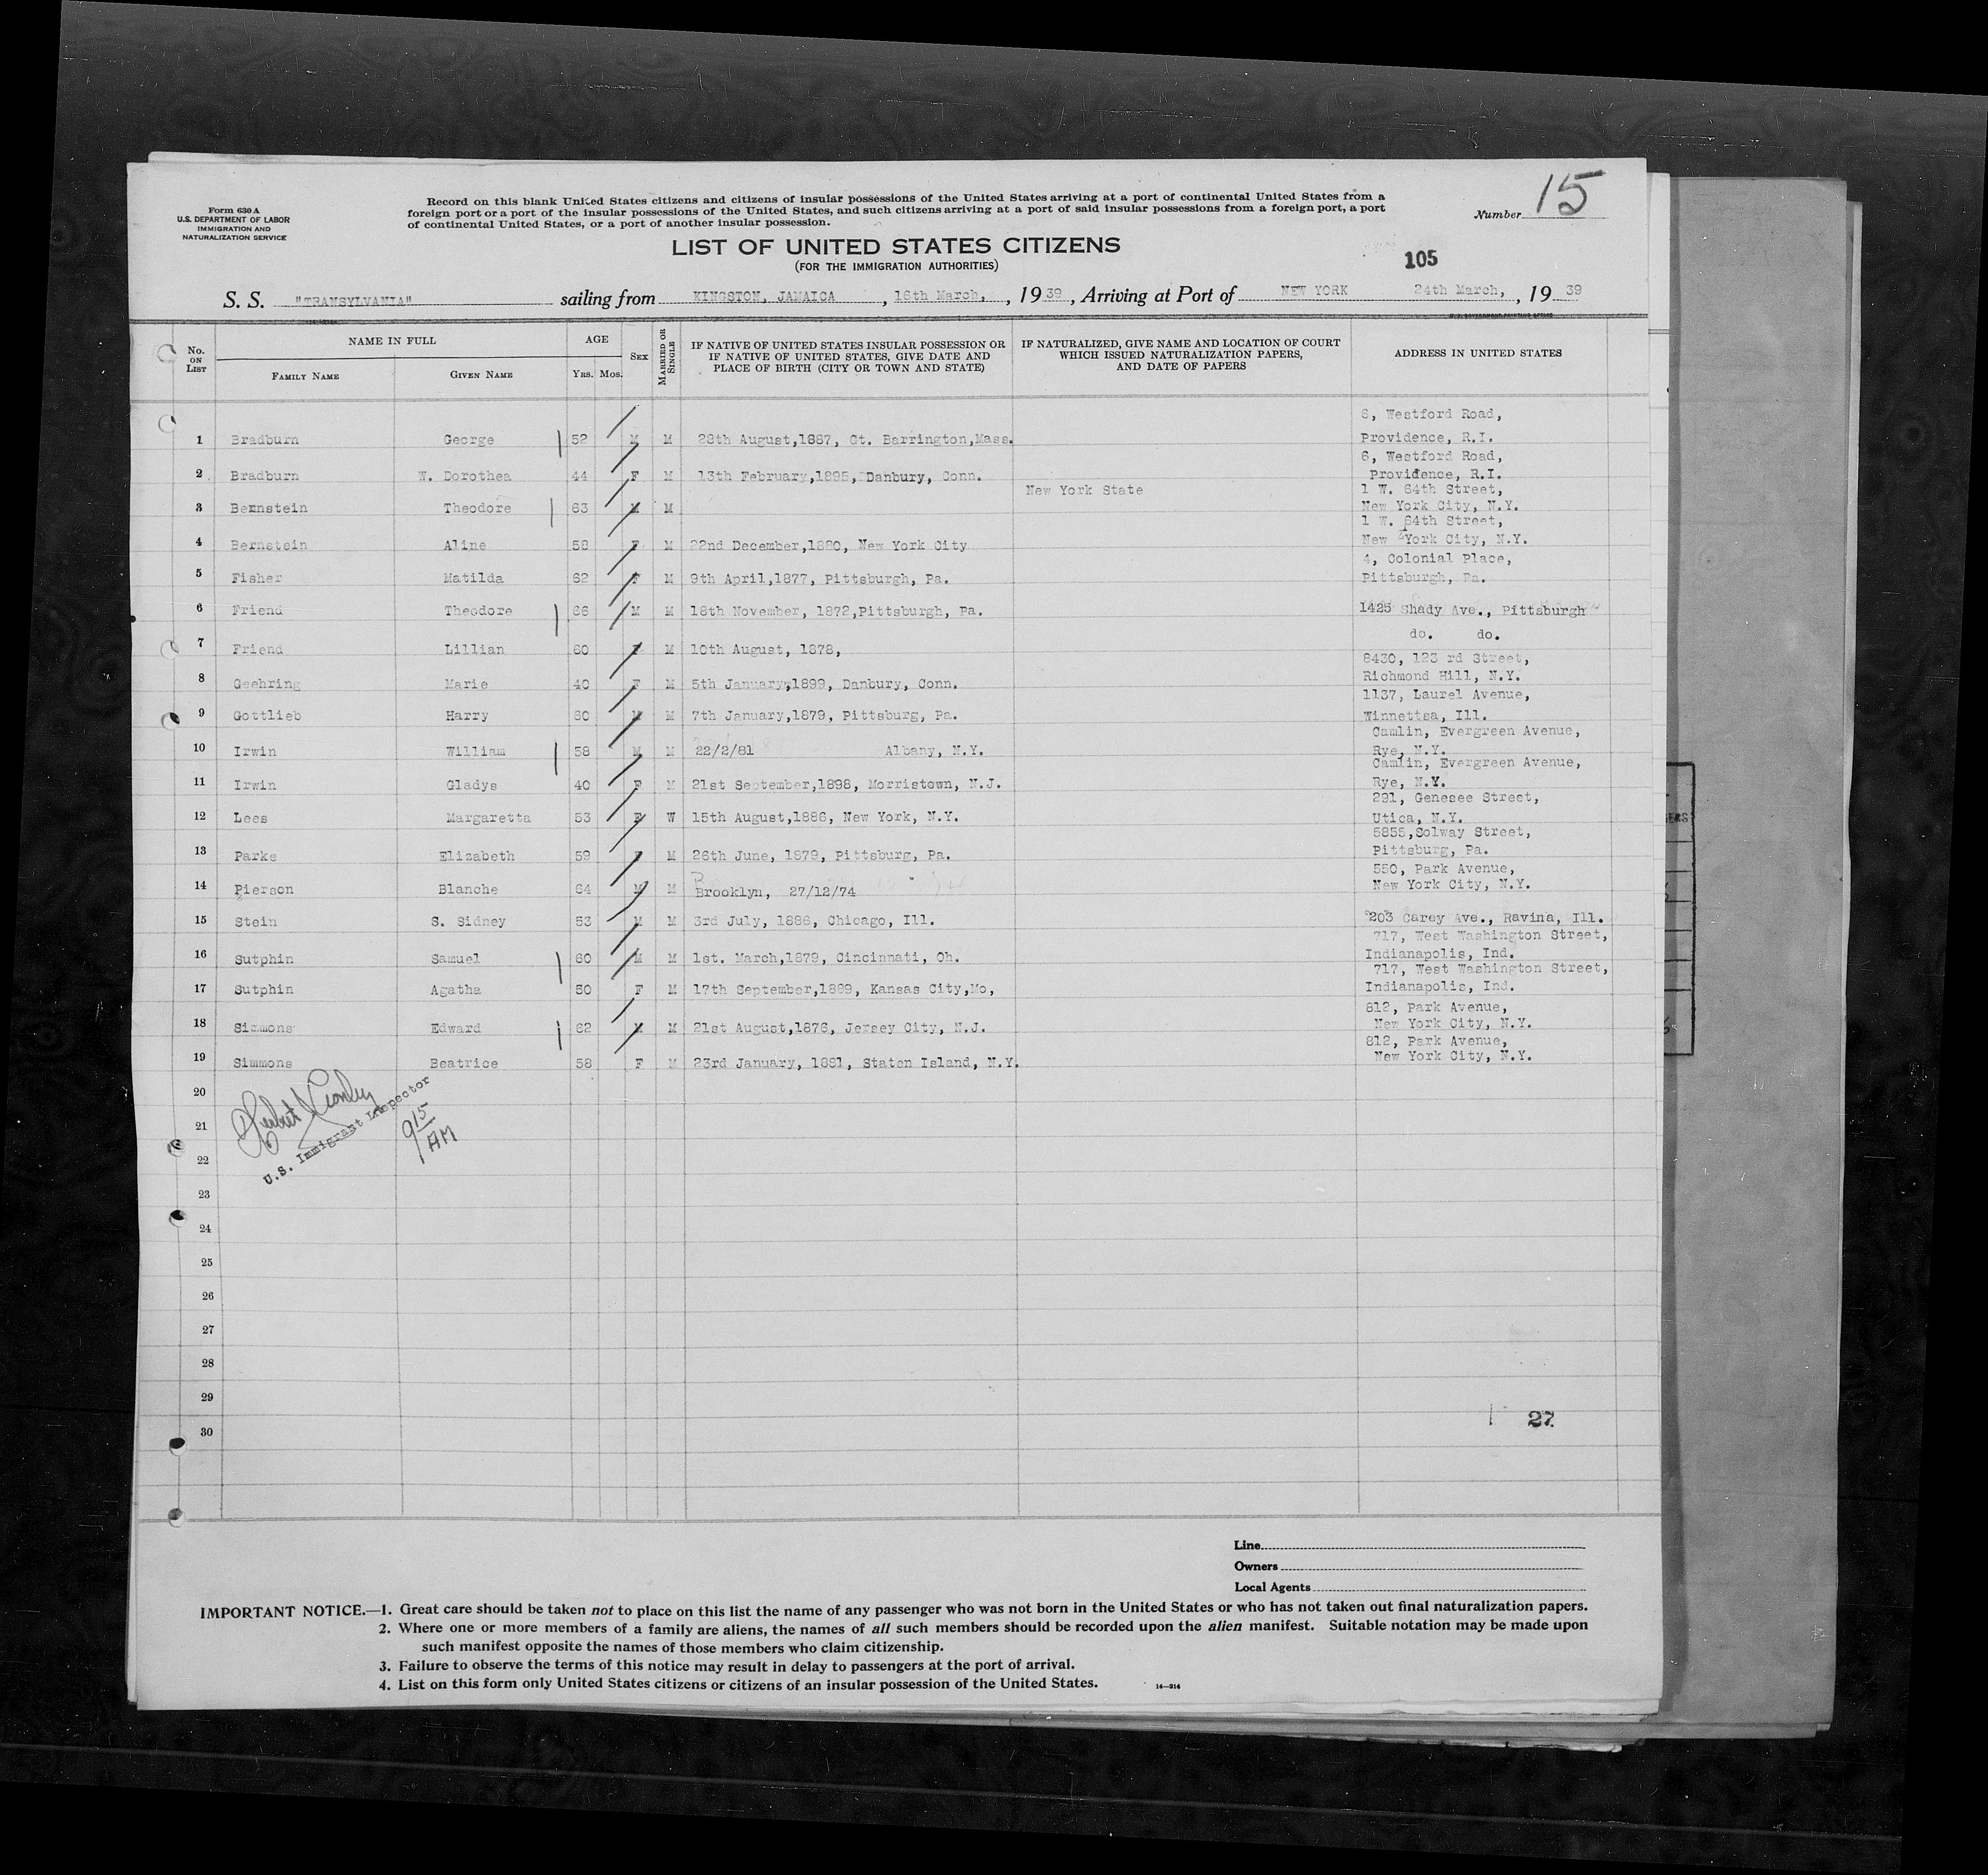 Form 630 A
U.S. DEPARTMENT OF LABOR
IMMIGRATION AND
NATURALIZATION SERVICE
Record on this blank United States citizens and citizens of insular possessions of the United States arriving at a port of continental United States from a
foreign port or a port of the insular possessions of the United States, and such citizens arriving at a port of said insular possessions from a foreign port, a port
of continental United States, or a port of another insular possession.
Number 15
LIST OF UNITED STATES CITIZENS
(FOR THE IMMIGRATION AUTHORITIES)
105
S. S. "TRANSYLVANIA" sailing from KINGSTON, JAMAICA , 18th March, , 19 39 , Arriving at Port of NEW YORK 24th March, , 19 39
U. S. GOVERNMENT PRINTING OFFICE
No. ON LIST NAME IN FULL FAMILY NAME GIVEN NAME AGE YRS. MOS. SEX MARRIED OR SINGLE IF NATIVE OF UNITED STATES INSULAR POSSESSION OR IF NATIVE OF UNITED STATES, GIVE DATE AND PLACE OF BIRTH (CITY OR TOWN AND STATE) IF NATURALIZED, GIVE NAME AND LOCATION OF COURT WHICH ISSUED NATURALIZATION PAPERS, AND DATE OF PAPERS ADDRESS IN UNITED STATES
6, Westford Road,
1 Bradburn George 52 M M 28th August,1887, Gt. Barrington,Mass. Providence, R.I.
6, Westford Road,
2 Bradburn W. Dorothea 44 F M 13th February,1895, Danbury, Conn. Providence, R.I.
New York State 1 W. 64th Street,
3 Bernstein Theodore 63 M M New York City, N.Y.
1 W. 64th Street,
4 Bernstein Aline 58 F M 22nd December,1880, New York City New York City, N.Y.
4, Colonial Place,
5 Fisher Matilda 62 F M 9th April,1877, Pittsburgh, Pa. Pittsburgh, Pa.
6 Friend Theodore 66 M M 18th November, 1872,Pittsburgh, Pa. 1425 Shady Ave., Pittsburgh
do. do.
7 Friend Lillian 60 F M 10th August, 1878,
8430, 123 rd Street,
8 Geehring Marie 40 F M 5th January,1899, Danbury, Conn. Richmond Hill, N.Y.
1137, Laurel Avenue,
9 Gottlieb Harry 60 M M 7th January,1879, Pittsburg, Pa. Winnettsa, Ill.
Camlin, Evergreen Avenue,
10 Irwin William 58 M M 22/2/81 Albany, N.Y. Rye, N.Y.
Camlin, Evergreen Avenue,
11 Irwin Gladys 40 F M 21st September,1898, Morristown, N.J. Rye, N.Y.
291, Genesee Street,
12 Lees Margaretta 53 F W 15th August,1886, New York, N.Y. Utica, N.Y.
5855,Solway Street,
13 Parke Elizabeth 59 F M 26th June, 1879, Pittsburg, Pa. Pittsburg, Pa.
550, Park Avenue,
14 Pierson Blanche 64 M M Brooklyn, 27/12/74 New York City, N.Y.
15 Stein S. Sidney 53 M M 3rd July, 1886, Chicago, Ill. 203 Carey Ave., Ravina, Ill.
717, West Washington Street,
16 Sutphin Samuel 60 M M 1st. March,1879, Cincinnati, Oh. Indianapolis, Ind.
717, West Washington Street,
17 Sutphin Agatha 50 F M 17th September,1889, Kansas City,Mo, Indianapolis, Ind.
812, Park Avenue,
18 Simmons Edward 62 M M 21st August,1876, Jersey City, N.J. New York City, N.Y.
812, Park Avenue,
19 Simmons Beatrice 58 F M 23rd January, 1881, Staten Island, N.Y. New York City, N.Y.
20
21
22
U.S. Immigrant Inspector
9 15 AM
23
24
25
26
27
28
29
27.
30
Line
Owners
Local Agents
IMPORTANT NOTICE.—1. Great care should be taken not to place on this list the name of any passenger who was not born in the United States or who has not taken out final naturalization papers.
2. Where one or more members of a family are aliens, the names of all such members should be recorded upon the alien manifest. Suitable notation may be made upon
such manifest opposite the names of those members who claim citizenship.
3. Failure to observe the terms of this notice may result in delay to passengers at the port of arrival.
4. List on this form only United States citizens or citizens of an insular possession of the United States.
14—914